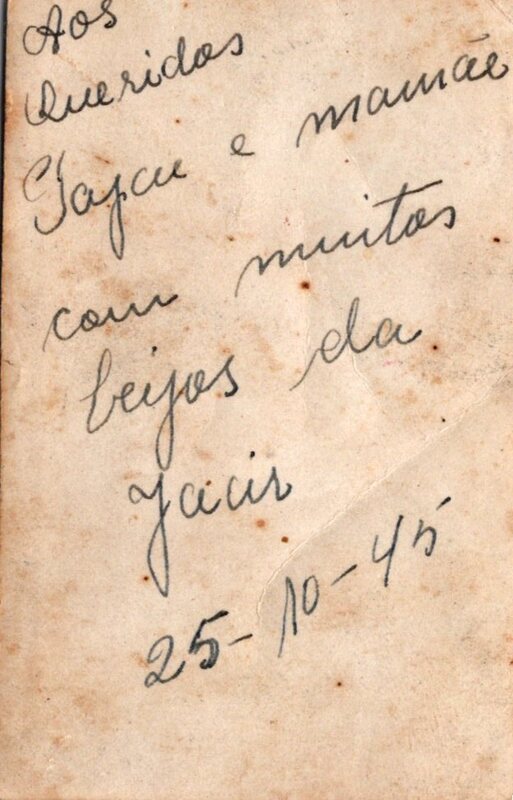 Aos
Queridos
Papai e mamãe
com muitos
beijos da
Jacir
25-10-45